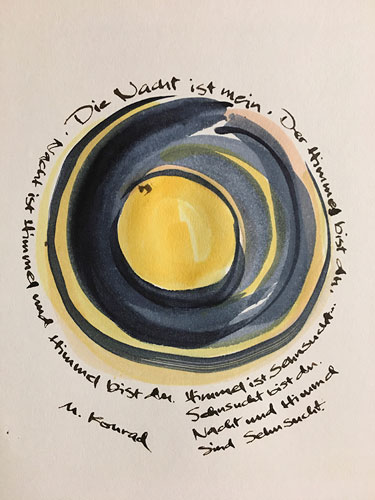 Die Nacht ist mein. Der Himmel bist du.
Nacht ist Himmel und Himmel bist du. Himmel ist Sehnsucht.
Sehnsucht bist du.
Nacht und Himmel
sind Sehnsucht.
M. Konrad